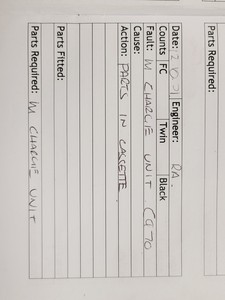 Parts Required:
Date: Engineer: RA.
Counts FC Twin Black
Fault: M CHARGE UNIT C970
Cause:
Action: PARTS IN CASSETTE.
Parts Fitted:
Parts Required: M CHARGE UNIT